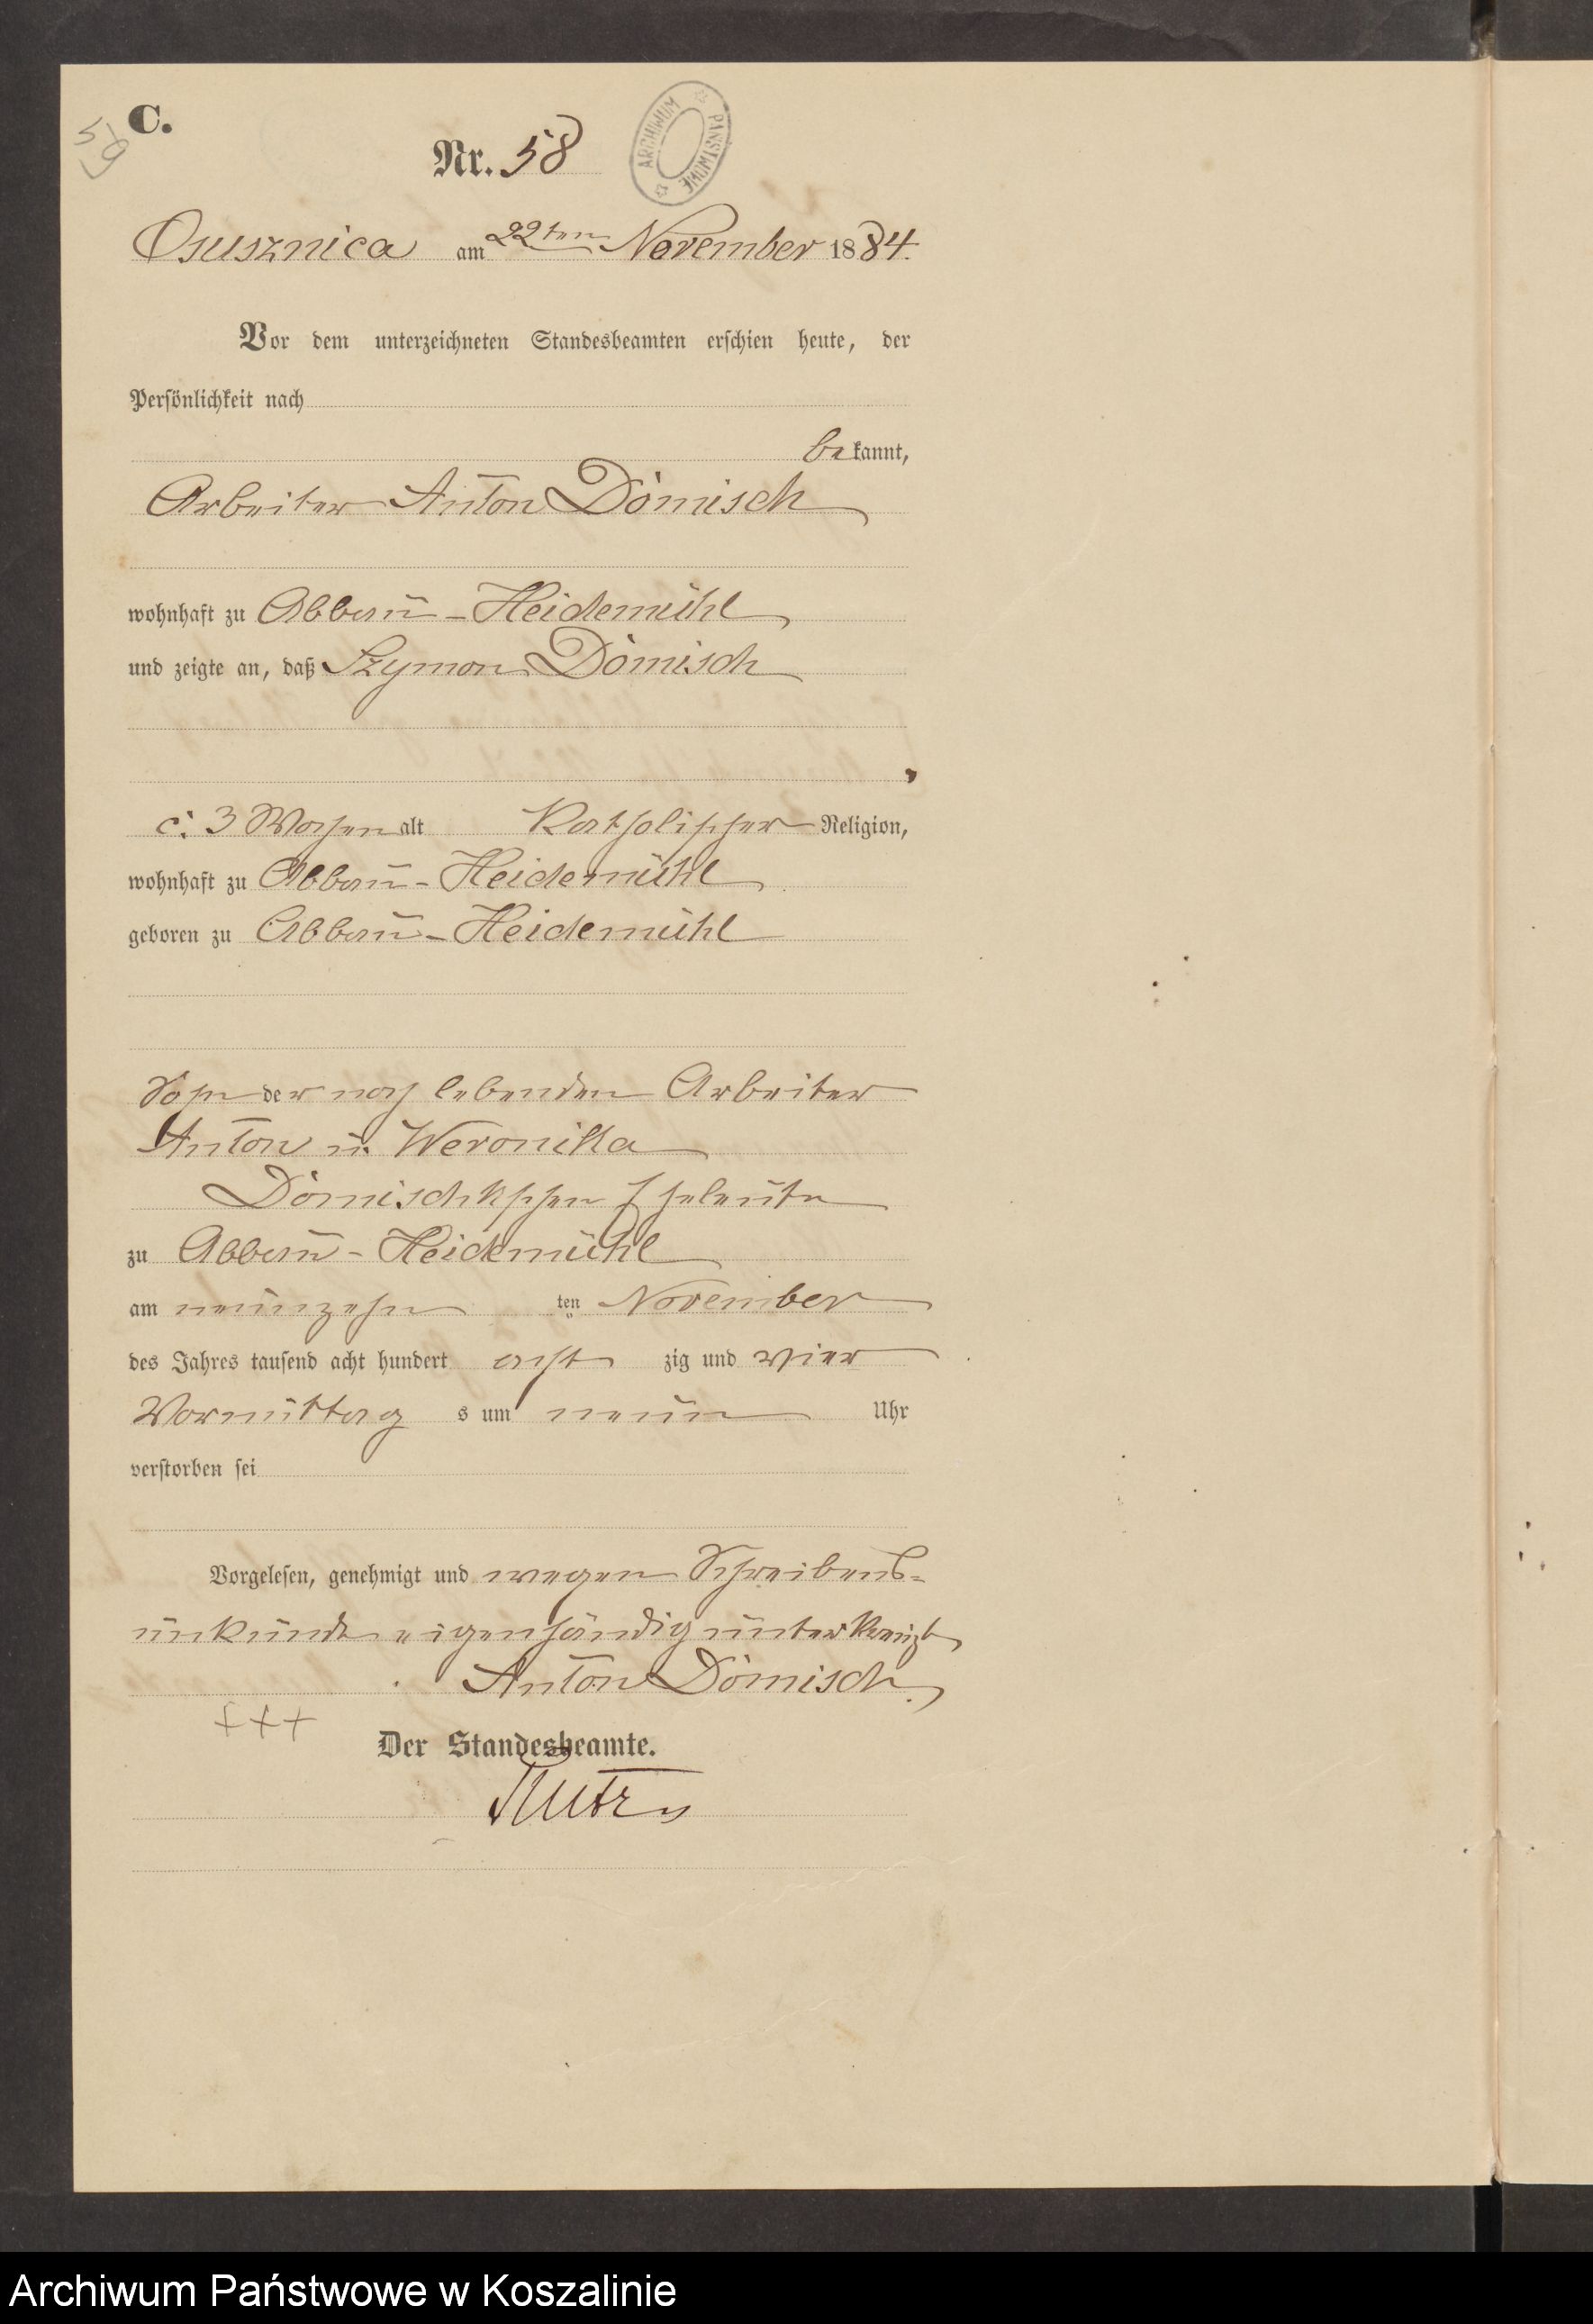 C.
59
Nr. 58
ARCHIWUM PAŃSTWOWE
Osusznica am 22ten November 1884.
Vor dem unterzeichneten Standesbeamten erschien heute, der
Persönlichkeit nach
bekannt,
Arbeiter Anton Dömisch
wohnhaft zu Abbau-Heidemühl
und zeigte an, daß Szymon Dömisch
,
c. 3 Wochen alt Katholischer Religion,
wohnhaft zu Abbau-Heidemühl
geboren zu Abbau-Heidemühl
Sohn der noch lebenden Arbeiter
Anton u. Weronika
Dömischkschen Eheleute
zu Abbau-Heidemühl
am neunzehn ten November
des Jahres tausend acht hundert acht zig und vier
Vormittag s um neun Uhr
verstorben sei
Vorgelesen, genehmigt und wegen Schreibens-
unkunde eigenhändig unterkreuzt
Anton Dömisch
+++
Der Standesbeamte.
Archiwum Państwowe w Koszalinie